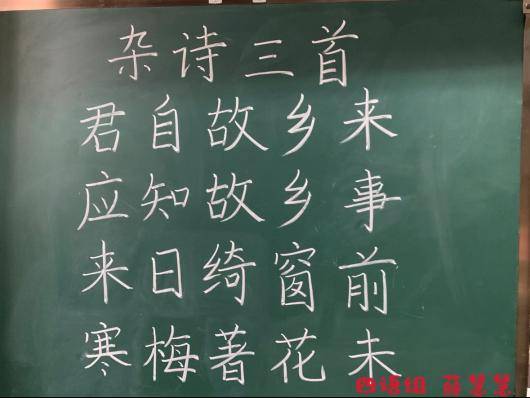 杂诗三首
君自故乡来
应知故乡事
来日绮窗前
寒梅著花未
四语组 薛某某